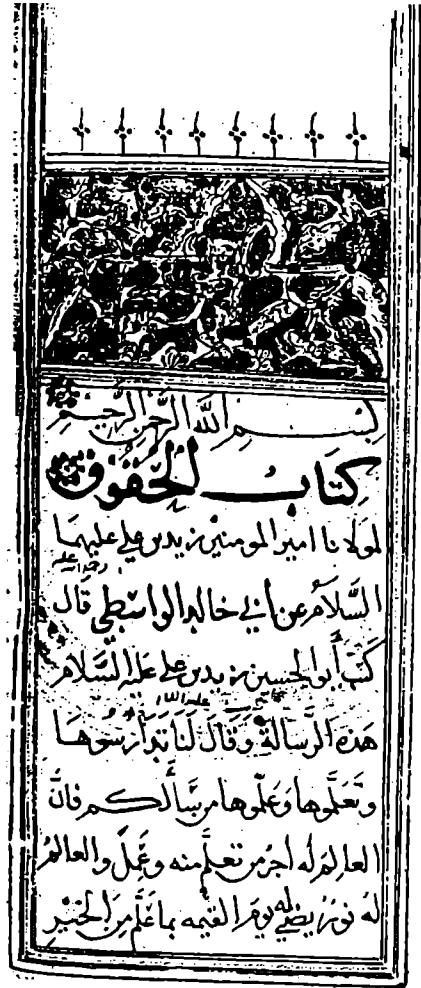 بسم الله الرحمن الرحيم
كتاب الحقوق
لمولانا امير المومنين زيد بن علي عليهما
السلام عن أبي خالد الواسطي رحمة الله عليه قال
كتب أبو الحسين زيد بن علي عليه السلام
هذه الرسالة وقال لنا تدارسوها
وتعلموها وعلموها من سألكم فان
العالم له أجر من تعلم منه وعمل والعالم
له نور يضيء له يوم القيمه بما علم من الخير